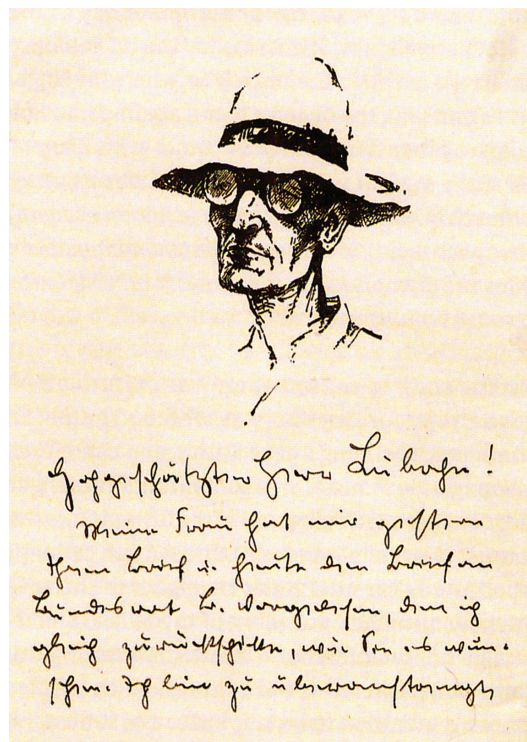 Hochgeschätzter Herr Lubahn!
Meine Frau hat mir gestern
Ihren Brief u. heute den Brief an
Bundesrat B. vorgelesen, den ich
gleich zurückschicke, wie Sie es wün-
schen. Ich bin zu überanstrengt